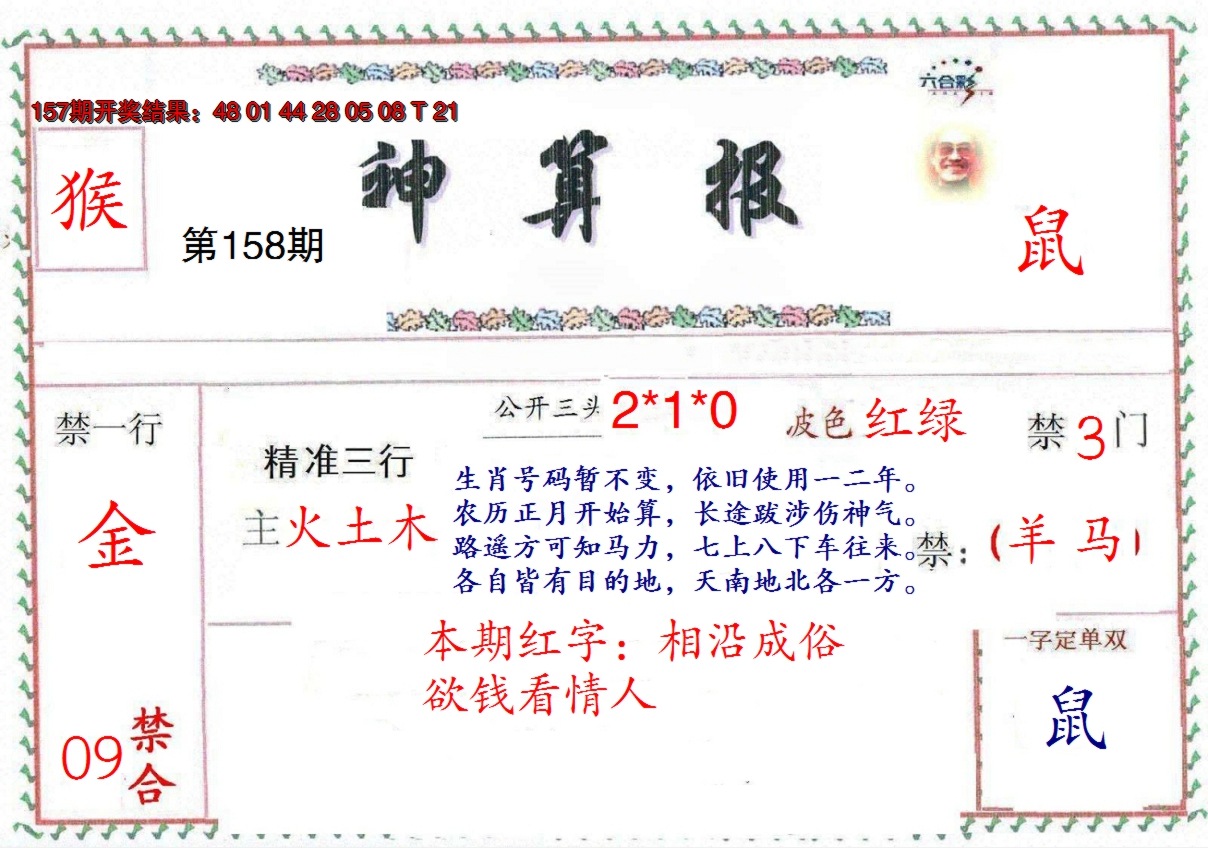 六合彩
157期开奖结果：48 01 44 28 05 08 T 21
神算报
猴
第158期
鼠
禁一行
金
09
禁合
精准三行
主火土木
公开三头 2*1*0
波色 红绿
禁3门
生肖号码暂不变，依旧使用一二年。
农历正月开始算，长途跋涉伤神气。
路遥方可知马力，七上八下车往来。
各自皆有目的地，天南地北各一方。
禁：（羊 马）
本期红字：相沿成俗
欲钱看情人
一字定单双
鼠